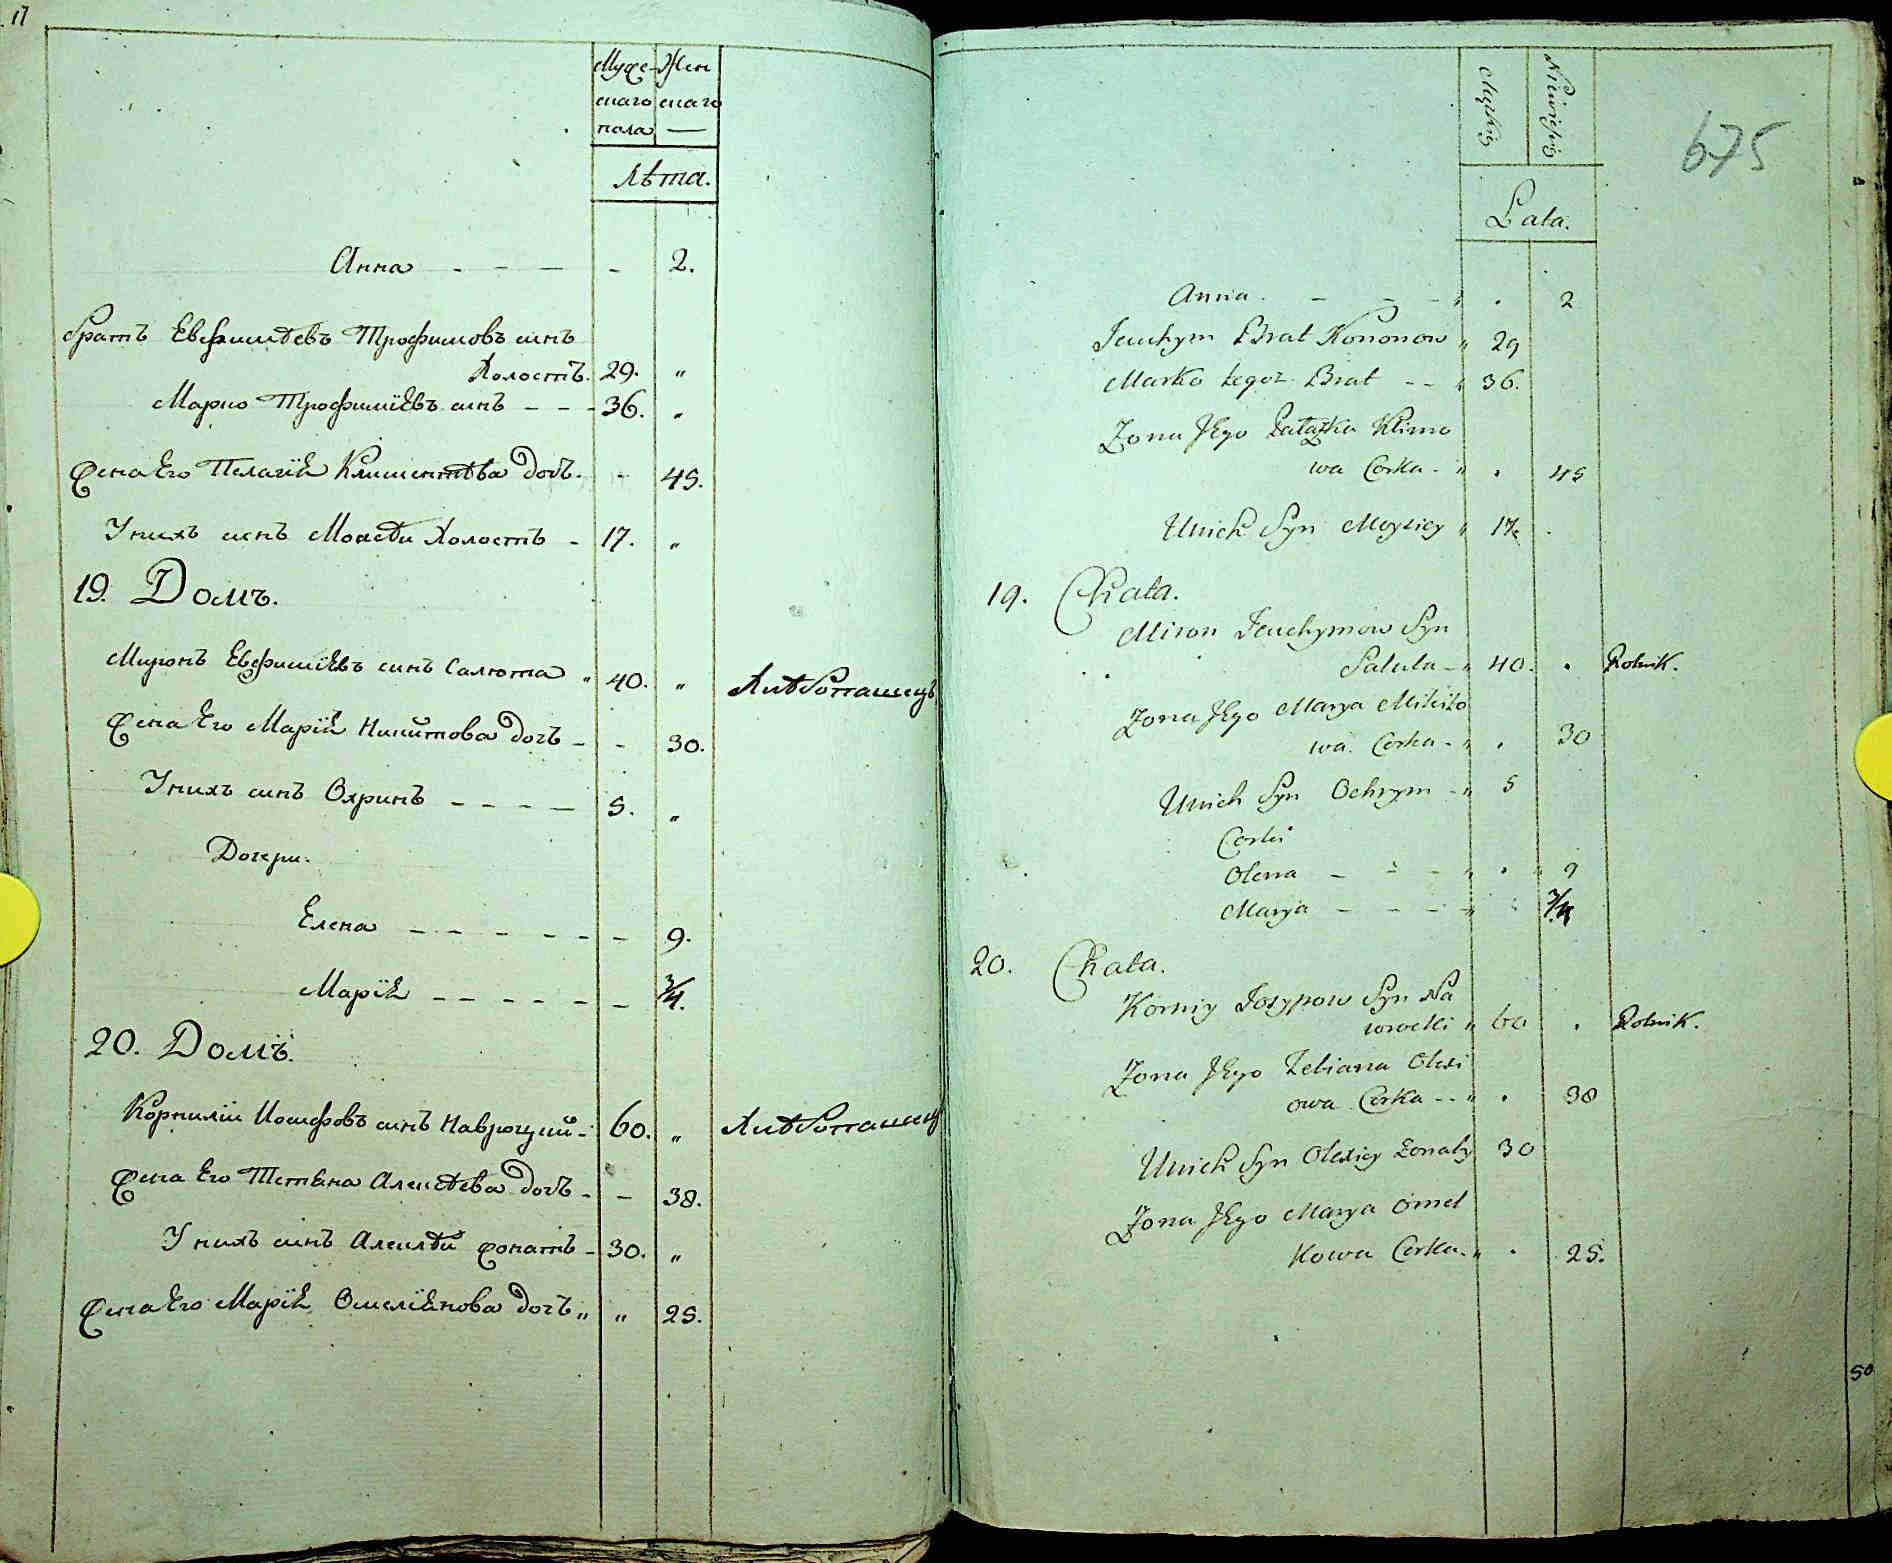 17
Мужескаго пола
Женскаго —
Лѣта.
Анна - - - - 2.
Братъ Евфимѣевъ Трофимовъ синъ
Холостъ. 29. "
Марко Трофимїевъ синъ - - - 36. "
Жена Его Пелагїя Климентѣва дочъ. - 45.
У нихъ синъ Моисѣй Холостъ - 17. "
19. Домъ.
Миронъ Евфимїевъ синъ Салюта " 40. " Хлѣбопашецъ
Жена Его Марїя Никитова дочъ - - 30.
У нихъ синъ Охримъ - - - - 5. "
Дочери.
Елена - - - - - - - 9.
Марїя - - - - - - 3/4.
20. Домъ.
Корнилїи Иосифовъ синъ Навроцкий - 60. " Хлѣбопашецъ
Жена Его Тетяна Алексѣева дочъ - - 38.
У нихъ синъ Алексѣй женатъ - 30. "
Жена Его Марїя Омелїянова дочъ " " 25.
Męzkiej
Niewieściej
675
Lata.
Anna. - - - " . 2
Jeuchym Brat Kononow " 29
Marko tegoz Brat - - " 36.
Zona Jego Pałażka Klimo
wa Corka - " . 45
Unich Syn Moysiey " 17 .
19. Chata.
Miron Jeuchymow Syn
Saluta - " 40. . Rolnik.
Zona Jego Marya Mikito
wa Corka - " . 30
Unich Syn Ochrym - " 5
Corki
Olena - - - " . " 9
Marya - - - - " 3/4
20. Chata.
Korniy Josypow Syn Na
wrocki " 60 . Rolnik.
Zona Jego Tetiana Olexi
owa Corka - - " . 38
Unich Syn Olexiey Zonaty 30
Zona Jego Marya Omel
kowa Corka. " . 25.
50